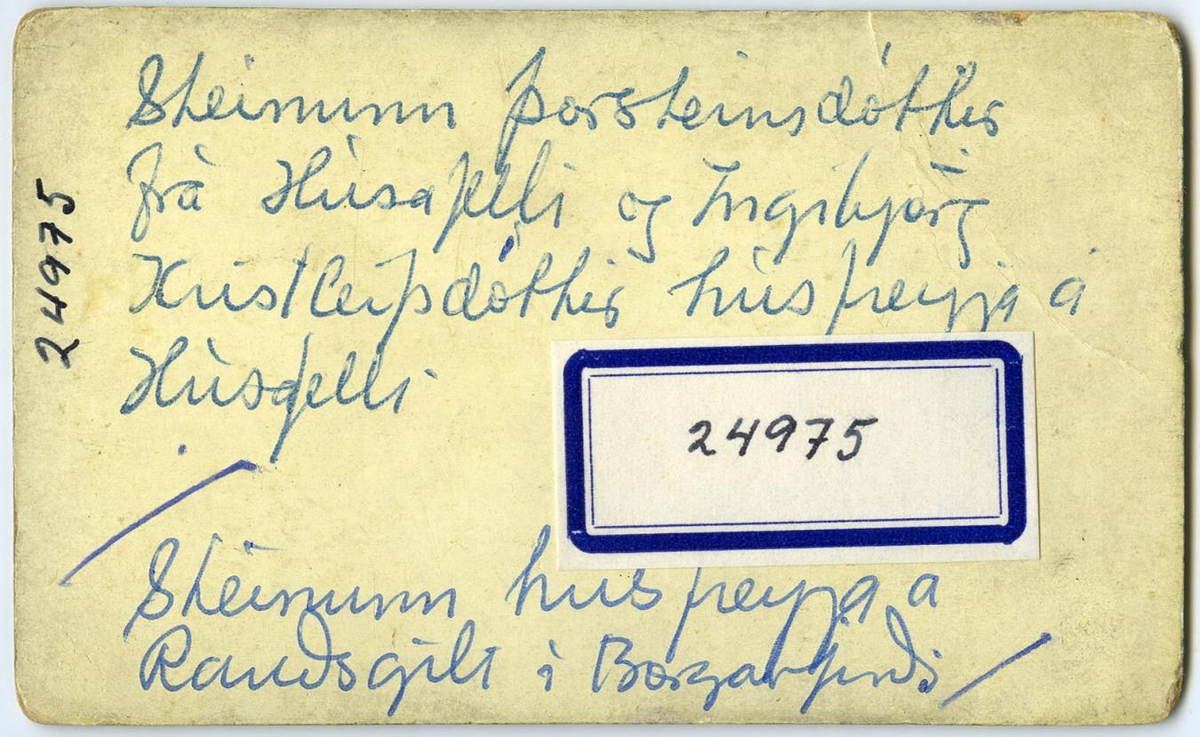 Steinunn þorsteinsdóttir
frá Húsafelli og Ingibjörg
Kristleifsdóttir húsfreyja á
Húsafelli
24975
24975
Steinunn húsfreyja á
Rauðsgili í Borgarfirði